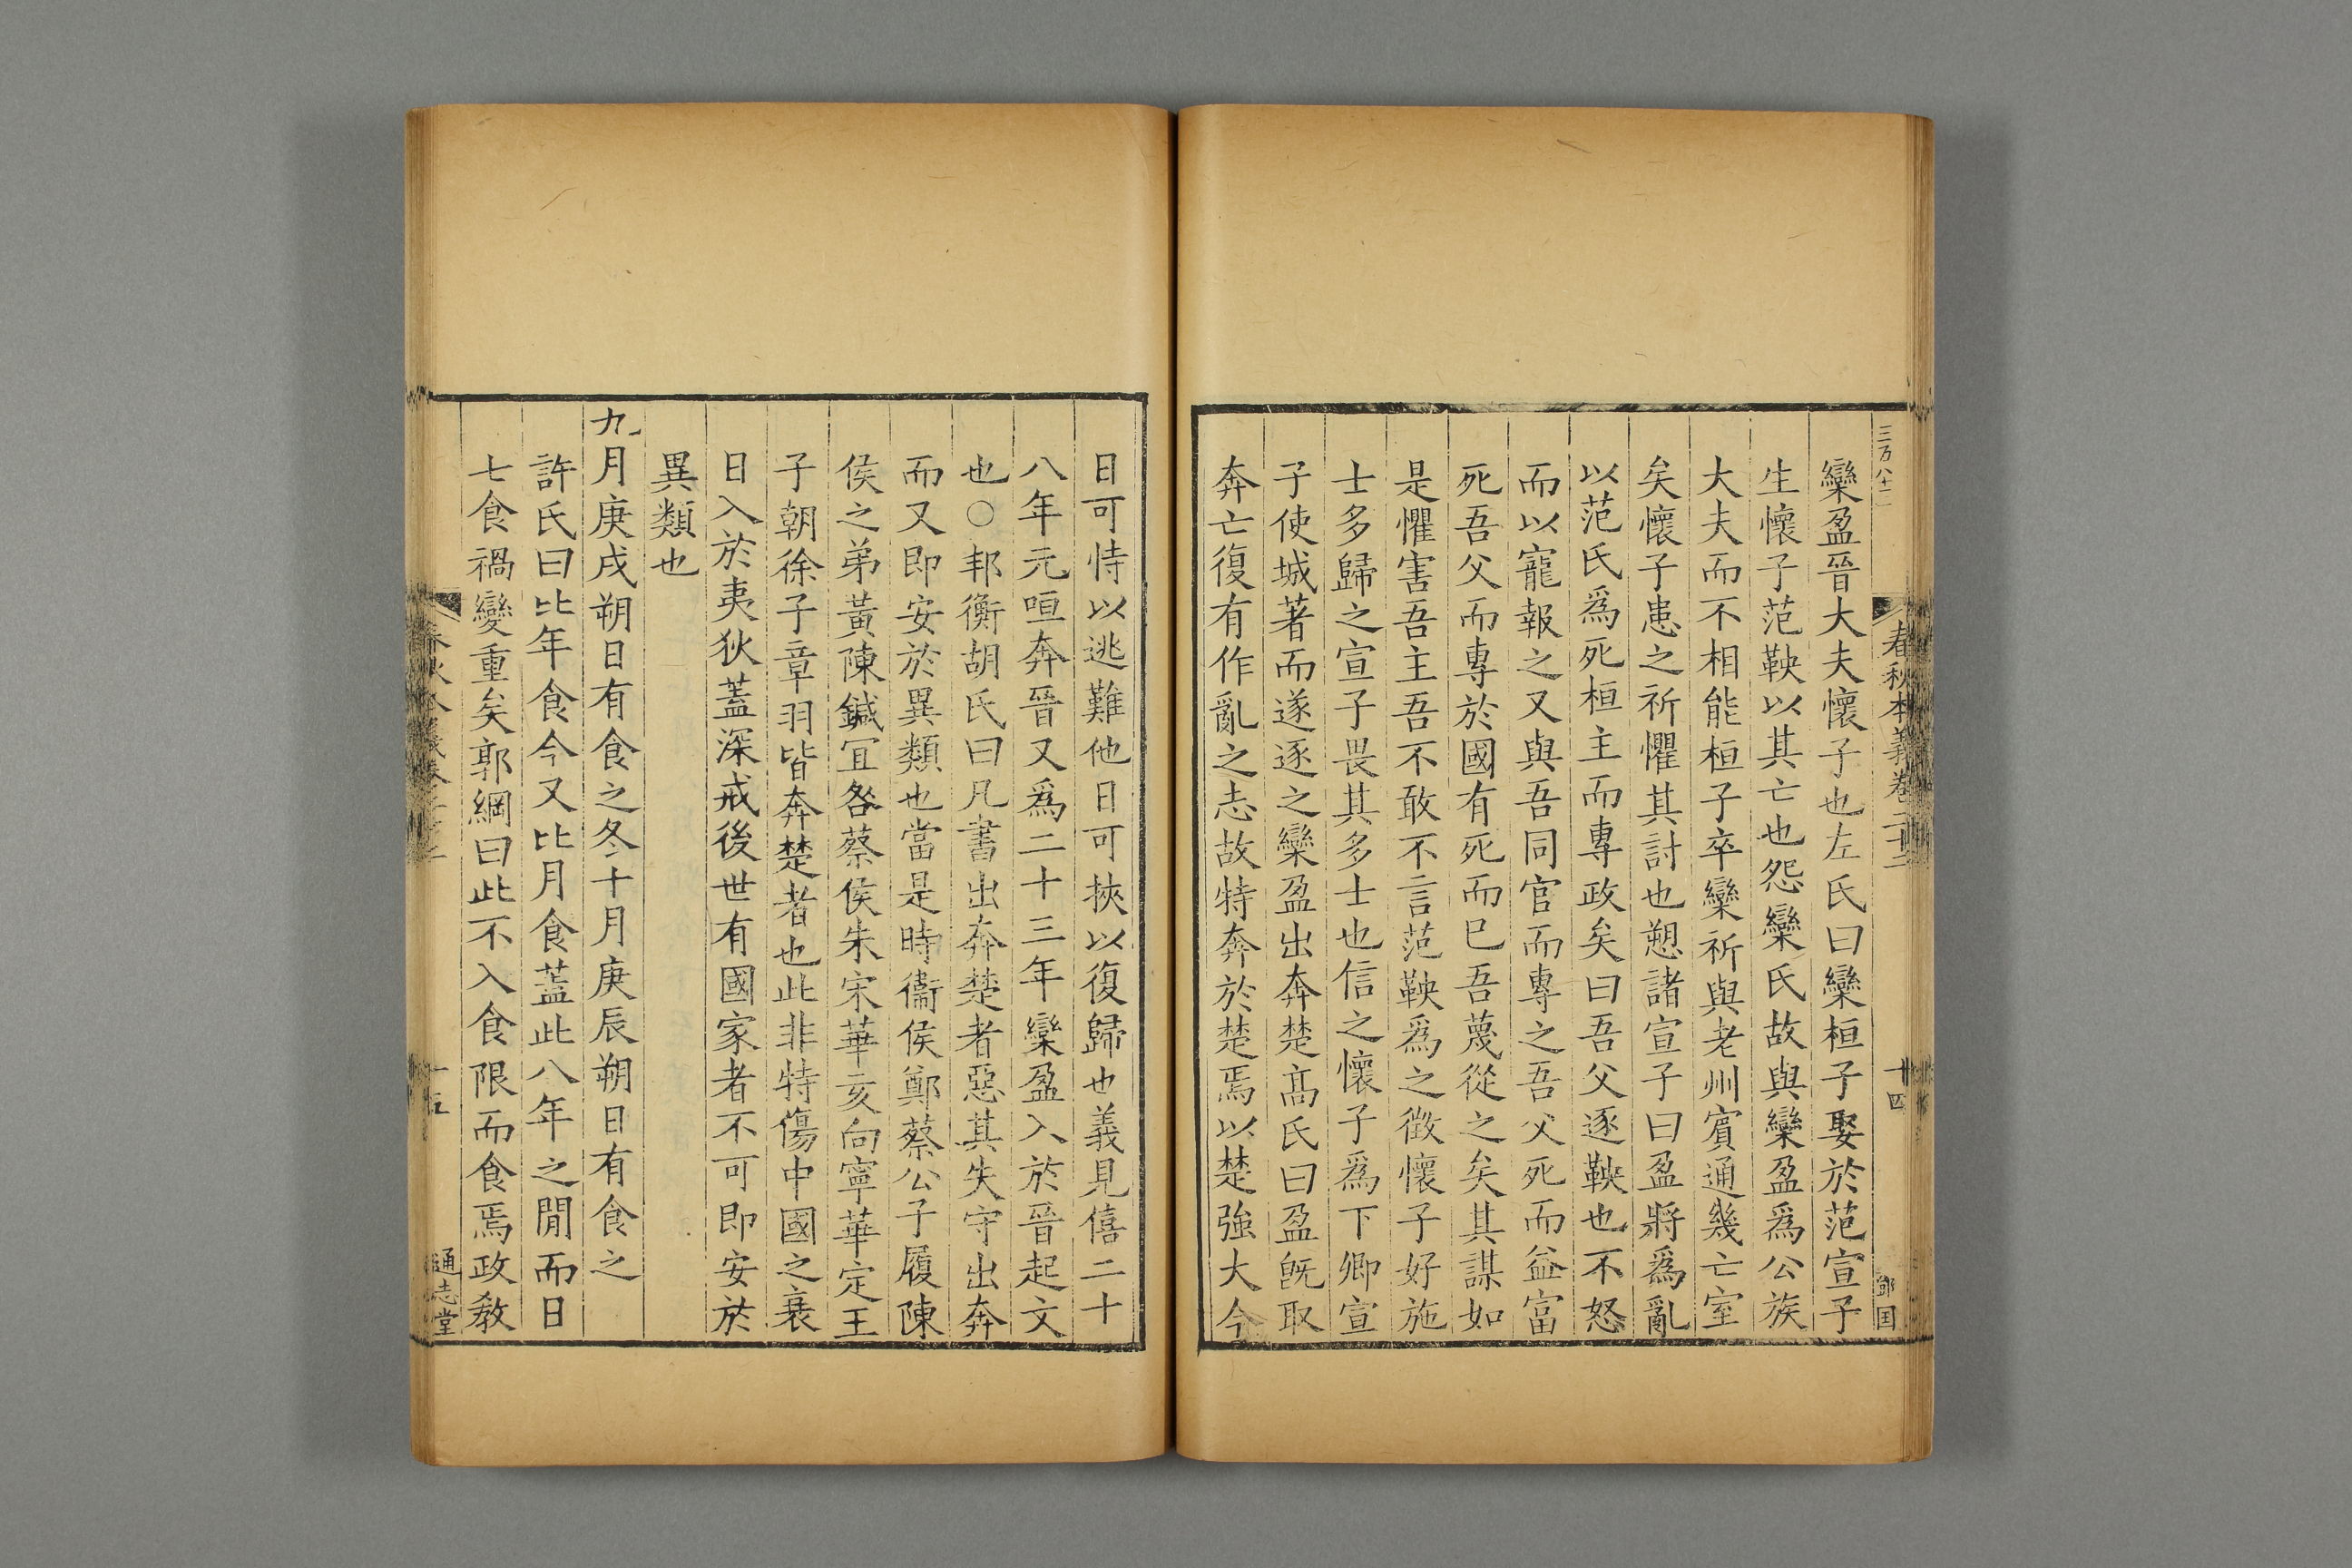 三万八十二
春秋本義卷二十二
十四
鄒国
欒盈晉大夫懷子也左氏曰欒桓子娶於范宣子
生懷子范鞅以其亡也怨欒氏故與欒盈爲公族
大夫而不相能桓子卒欒祈與老州賓通幾亡室
矣懷子患之祈懼其討也愬諸宣子曰盈將爲亂
以范氏爲死桓主而專政矣曰吾父逐鞅也不怒
而以寵報之又與吾同官而專之吾父死而益富
死吾父而專於國有死而已吾蔑從之矣其謀如
是懼害吾主吾不敢不言范鞅爲之徵懷子好施
士多歸之宣子畏其多士也信之懷子爲下卿宣
子使城著而遂逐之欒盈出奔楚髙氏曰盈旣取
奔亡復有作亂之志故特奔於楚焉以楚強大今
日可恃以逃難他日可挾以復歸也義見僖二十
八年元咺奔晉又爲二十三年欒盈入於晉起文
也○邦衡胡氏曰凡書出奔楚者惡其失守出奔
而又即安於異類也當是時衞侯鄭蔡公子履陳
侯之弟黃陳鍼宜咎蔡侯朱宋華亥向寧華定王
子朝徐子章羽皆奔楚者也此非特傷中國之衰
日入於夷狄蓋深戒後世有國家者不可即安於
異類也
九月庚戌朔日有食之冬十月庚辰朔日有食之
許氏曰比年食今又比月食蓋此八年之閒而日
七食禍變重矣郭綱曰此不入食限而食焉政教
十五
通志堂